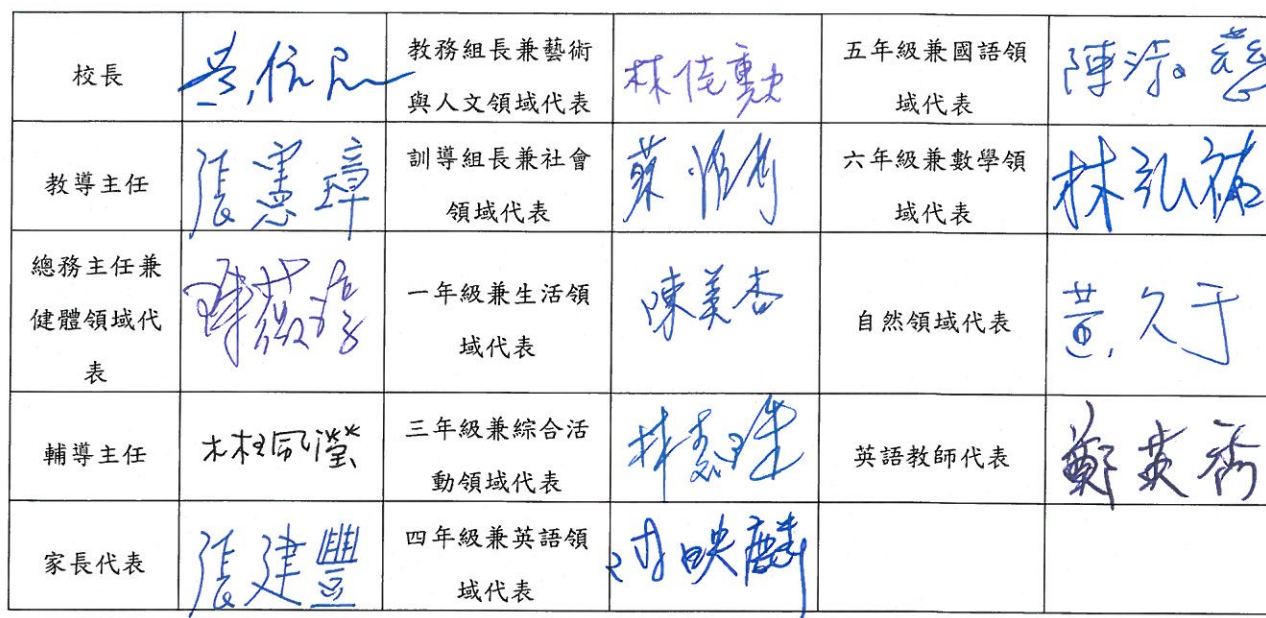 校長
黃信恩
教務組長兼藝術
與人文領域代表
林佳勳
五年級兼國語領
域代表
教導主任
張憲璋
訓導組長兼社會
領域代表
六年級兼數學領
域代表
林弘祐
總務主任兼
健體領域代
表
陳薇
一年級兼生活領
域代表
陳美杏
自然領域代表
黃久于
輔導主任
林珮瀅
三年級兼綜合活
動領域代表
英語教師代表
鄭英秀
家長代表
張建豐
四年級兼英語領
域代表
映麟